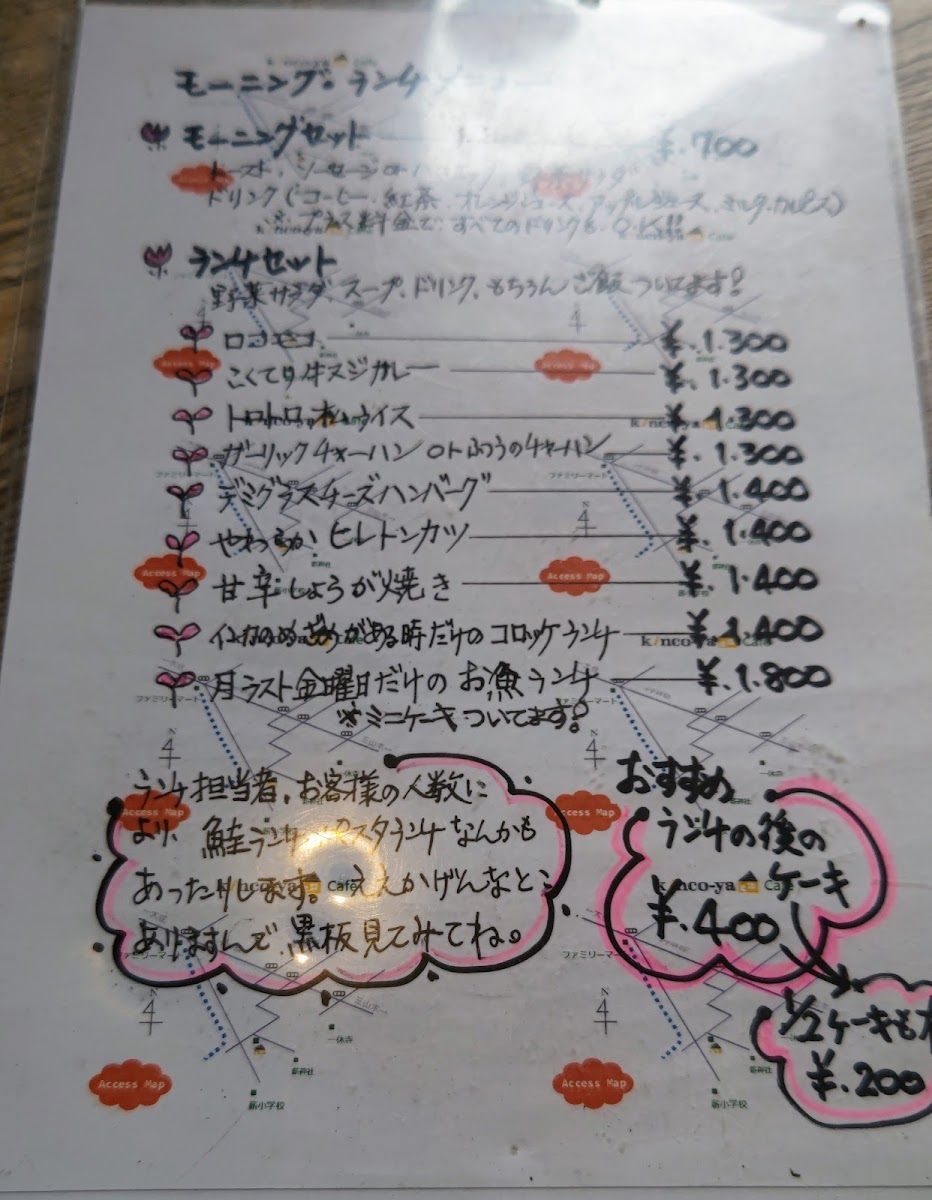 モーニング・ランチメニュー
モーニングセット ¥.700
トースト、ソーセージ
ドリンク(コーヒー、紅茶、オレンジジュース、アップルジュース、ミルク、カルピス)
※プラス料金で、すべてのドリンクもO.K!!
ランチセット
野菜サラダ、スープ、ドリンク、もちろんご飯ついてます!
ロコモコ ¥.1.300
こくてり牛スジカレー ¥.1.300
トロトロオムライス ¥.1.300
ガーリックチャーハン orふつうのチャーハン ¥.1.300
デミグラスチーズハンバーグ ¥.1.400
やわらか、ヒレトンカツ ¥.1.400
甘辛しょうが焼き ¥.1.400
インカのめざめがある時だけのコロッケランチ ¥.1.400
月ラスト金曜日だけのお魚ランチ ¥.1.800
※ミニケーキついてます!
ランチ担当者、お客様の人数に
より、鮭ランチ、パスタランチなんかも
あったりします。ええかげんなとこ
ありますんで、黒板見てみてね。
おすすめ
ランチの後の
ケーキ
¥.400
1/2ケーキも
¥.200
kinco-ya Cafe
Access Map
ファミリーマート
一休寺
薪神社
薪小学校